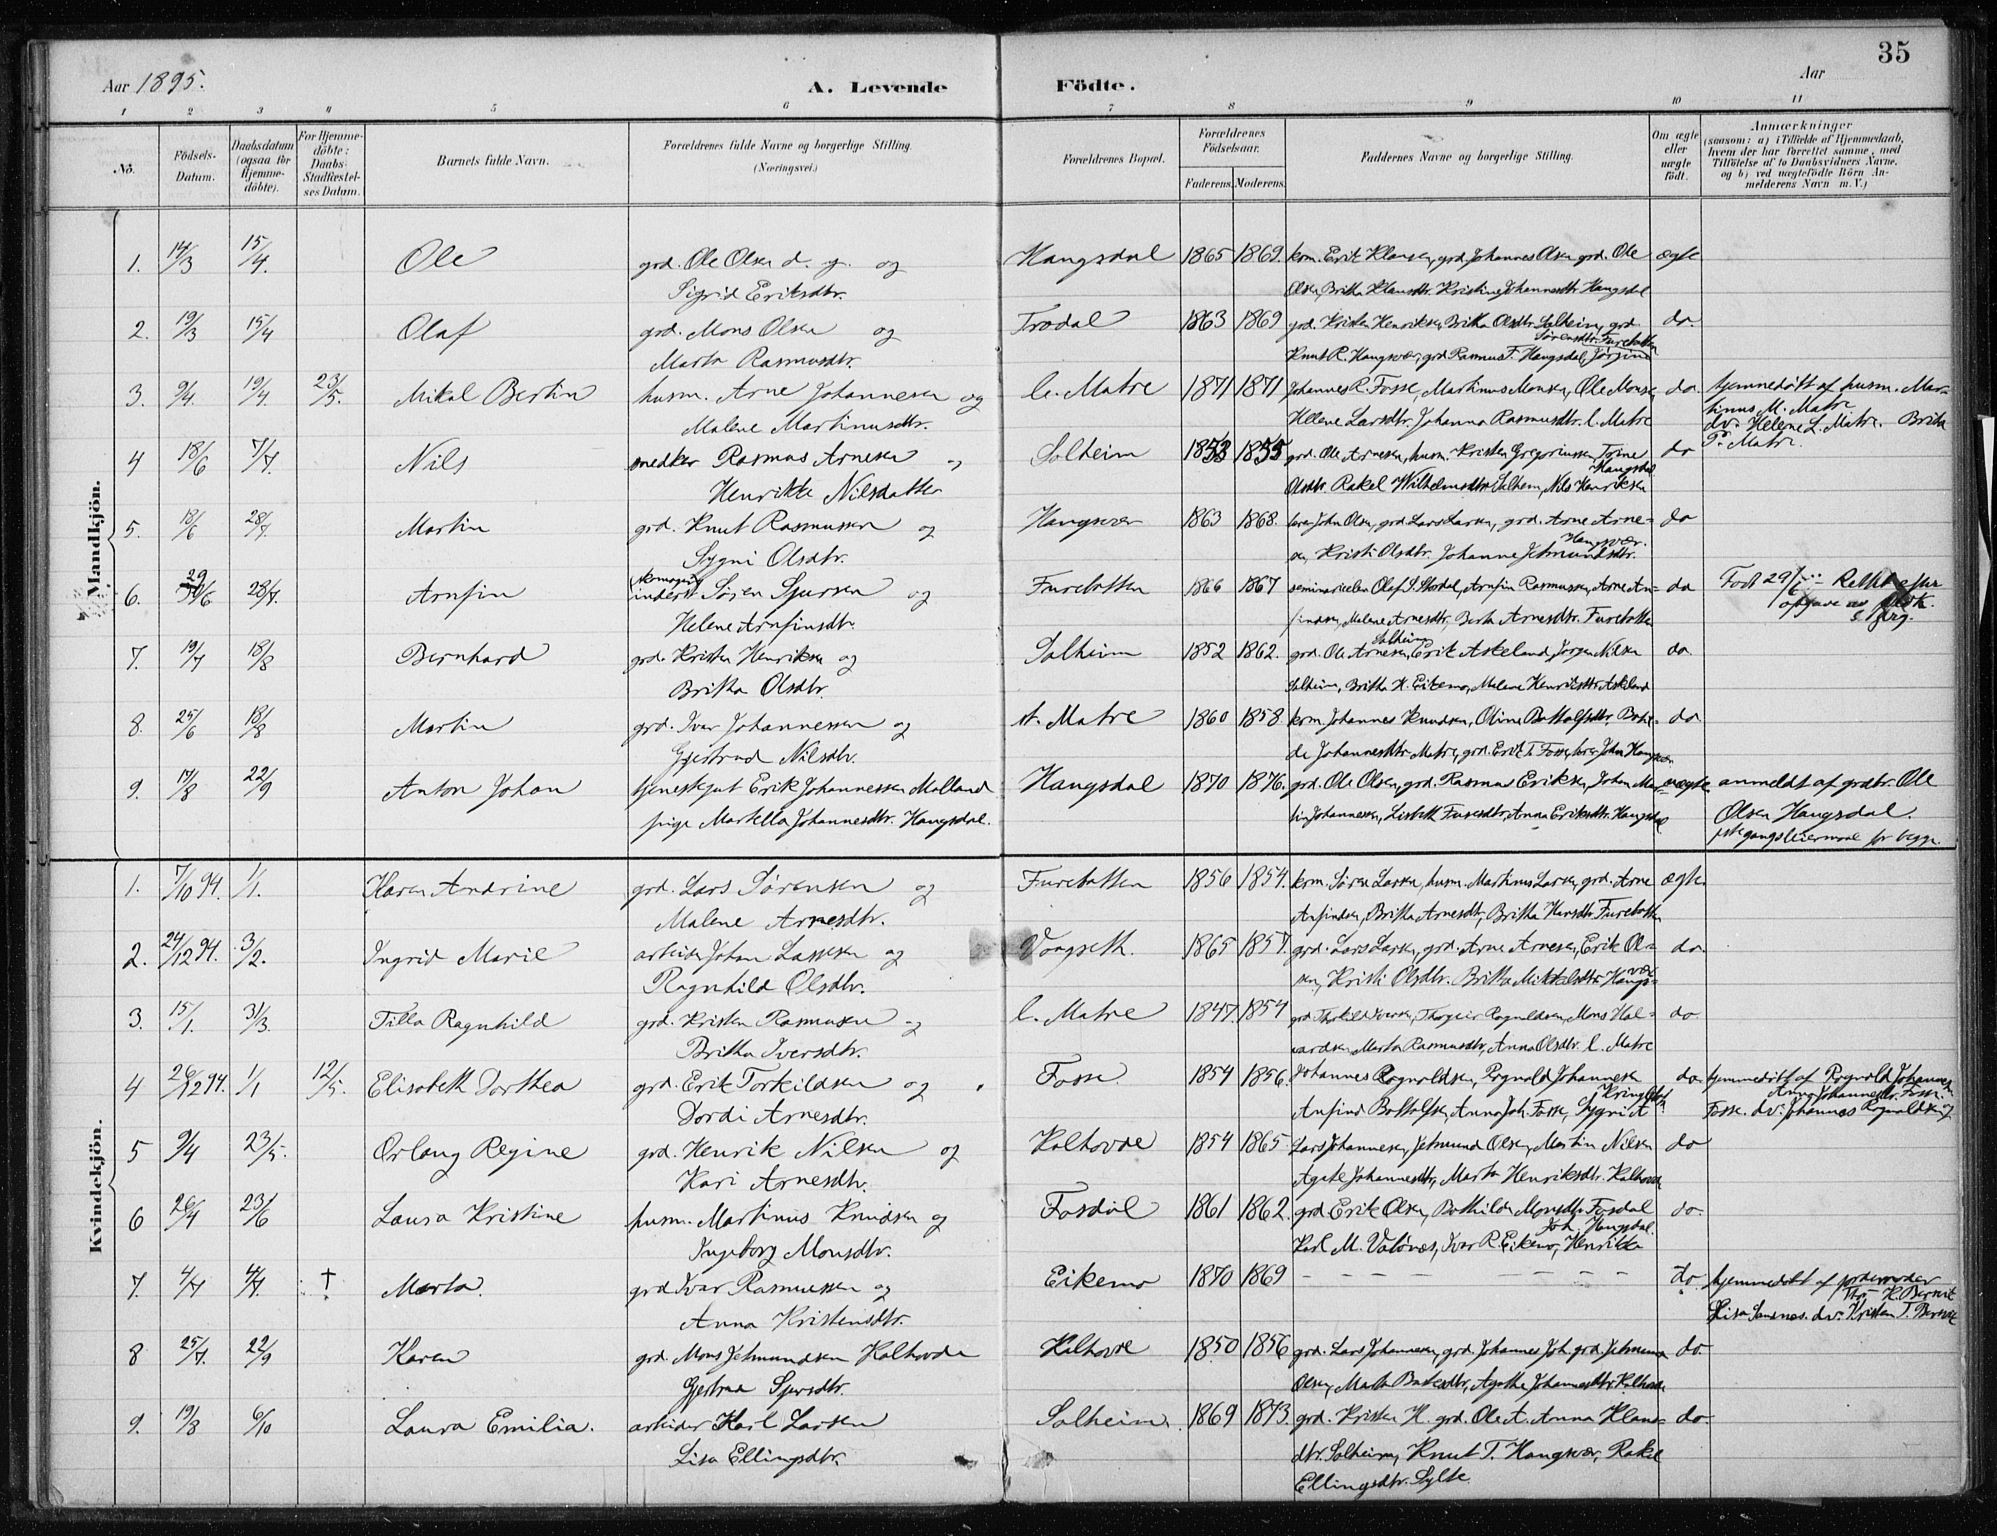 35
Aar 1895. A. Levende Födte. Aar
1 2 3 4 5 6 7 8 9 10 11
No. Födsels-Datum. Daabsdatum (ogsaa for Hjemme-döbte). For Hjemme-döbte: Daabs-Stadfæstel-ses Datum. Barnets fulde Navn. Forældrenes fulde Navne og borgerlige Stilling. (Næringsvei.) Forældrenes Bopæl. Forældrenes Födselsaar. Faderens. Moderens. Faddernes Navne og borgerlige Stilling. Om ægte eller uægte födt. Anmærkninger (saasom: a) i Tilfælde af Hjemmedaab, hvem der har forrettet samme, med Tilföielse af to Daabsvidners Navne, og b) ved uægtefödte Börn Anmelderens Navn m. V.)
Mandkjön.
1. 14/3 15/4. Ole grd. Ole Olsen d. y. og Haugsdal 1865 1869. krm. Erik Klausen, grd. Johannes Olsen grd. Ole ægte
Sigrid Eriksdtr. Olsen, Britha Klausdtr. Kristine Johannesdtr. Haugsdal
2. 19/3 15/4 Olaf grd. Mons Olsen og Trodal 1863 1869 grd. Kristen Henriksen, Britha Olsdtr. Solheim, grd. do.
Sørensdtr. Furebotten
Marta Rasmusdtr. Knut R. Haugsvær, grd. Rasmus T. Haugsdal, Jørgine
3. 9/4. 19/4. 23/5. Mikal Bertin husm. Arne Johannesen og l. Matre 1871 1871 Johannes R. Fosse, Martinus Monsen, Ole Monsen do. hjemmedøbt af husm. Mar-
Malene Martinusdtr. Hellene Larsdtr. Johanna Rasmusdtr. l. Matre tinus M. Matre
dv. Helene L. Matre. Britha
P. Matre.
4 18/6 7/7. Nils snedker Rasmus Arnesen og Solheim 1853 1855 grd. Ole Arnesen, husm. Kristen Gregoriussen, do
Haugsdal
Henrikke Nilsdatter Olsdtr. Rakel Wilhelmsdtr. Solheim, Nils Henriksen
5. 18/6 28/7. Martin grd. Knut Rasmussen og Haugsvær 1863 1868. John Olsen, grd. Lars Larsen, grd. Arne Arne- do
Haugsvær.
Sygni Olsdtr. sen, Kristi Olsdtr. Johanne Jetmundsdtr.
6. 29/6 28/7. Arnfin Søren Sjursen og Furebotten 1866 1867 Olaf S. Stordal, Arnfin Rasmussen, Arne Arn- do Født 29/6
opgave
Helene Arnfinsdtr. findsen, Malene Arnesdtr, Berta Arnesdtr. Furebotten
7. 19/7 18/8 Bernhard grd. Kristen Henriksen og Solheim 1852 1862. grd. Ole Arnesen, Erik Askeland, Jørgen Nilsen do.
Solheim
Britha Olsdtr. Solheim, Britha H. Eikemo, Malene Henriksdtr. Askeland
8. 25/6 18/8 Martin grd. Ivar Johannessen og st. Matre 1860 1858. krm. Johannes Knudsen, Oline Bottolfsdtr. Bothil- do
Gjertrud Nilsdtr. de Johannesdtr. Matre, grd. Erik T. Fosse, John Haugsvær
9. 17/8 22/9 Anton Johan tjenestegut Erik Johannessen Molland Haugsdal 1870 1876. grd. Ole Olsen, grd. Rasmus Eriksen, Johan Mar- uægte anmeldt af grdbr. Ole
pige Martella Johannesdtr. Haugsdal. tin Johannesen, Lisbeth Anna Eriksdtr. Haugsdal Olsen Haugsdal.
1ste gangs leiermaal for begge.
Kvindekjön.
1. 7/10 94. 1/1. Karen Andrine grd. Lars Sørensen og Furebotten 1856 1854. krm. Søren Larsen, husm. Martinus Larsen, grd. Arne ægte.
Malene Arnesdtr. Anfindsen, Britha Arnesdtr, Britha Hansdtr. Furebotten
2. 24/12 94. 3/2. Ingrid Marie arbeider Johan Lassesen og Vongseth. 1865 1857. grd. Lars Larsen, grd. Arne Arnesen, Erik Ol- do.
Ragnhild Olsdtr. sen, Kristi Olsdtr. Britha Mikkelsdtr. Haugs-vær
3. 15/1. 31/3. Tilla Ragnhild grd. Kristen Rasmussen og l. Matre 1847. 1854 grd. Thorkild Iversen, Thorgeir Rognaldsen, Mons Hal- do.
Britha Iversdtr. vardsen, Marta Rasmusdtr, Anna Olsdtr. l. Matre
4 26/12 94. 1/1 12/5. Elisabeth Dorthea grd. Erik Torkildsen og Fosse 1854 1856. Johannes Rognaldsen, Rognald Johannesen do. hjemmedøbt af Rognald Johannesen
Anna Johannesdtr. Fosse
Dordi Arnesdtr. Anfind Bottolfsen, Anna Joh. Fosse, Sygni A Fosse. dv. Johannes Rognaldsen og
5 9/4 23/5. Orlaug Regine grd. Henrik Nilsen og Kalhovde 1854 1865. Lars Johannesen, Jetmund Olsen, Martin Nilsen do
Kari Arnesdtr. Agate Johannesdtr, Marta Henriksdtr. Kalhovde
6 26/4 23/6 Laura Kristine husm. Martinus Knudsen og Fosdal 1861 1862. grd. Erik Olsen, Bothilde Monsdtr. Fosdal do.
Joh. Haugsdal.
Ingeborg Monsdtr. Karl M. Vatnøes, Ivar R. Eikemo, Henrikka
7. 4/7 4/7. † Marta. grd. Ivar Rasmussen og Eikemo 1870 1869 – – – – – – – do. hjemmedøbt af jordemoder
Anna Kristensdtr. Lisa Sennes. dv. Kristen T.
8 25/7. 22/9 Karen grd. Mons Jetmundsen Kalhovde Kalhovde 1850 1856 grd. Lars Johannesen, grd. Johannes Joh. grd. Jetmund do.
Gjertrud Sjursdtr. Olsen, Marta Agathe Johannesdtr. Kalhovde
9. 19/8 6/10 Laura Emilia. arbeider Karl Larsen Solheim. 1869 1873. grd. Kristen H. grd. Ole A. Anna Klaus- do
Lisa Ellingsdtr. dtr. Solheim, Knut T. Haugsvær, Rakel
Ellingsdtr. Sylte.